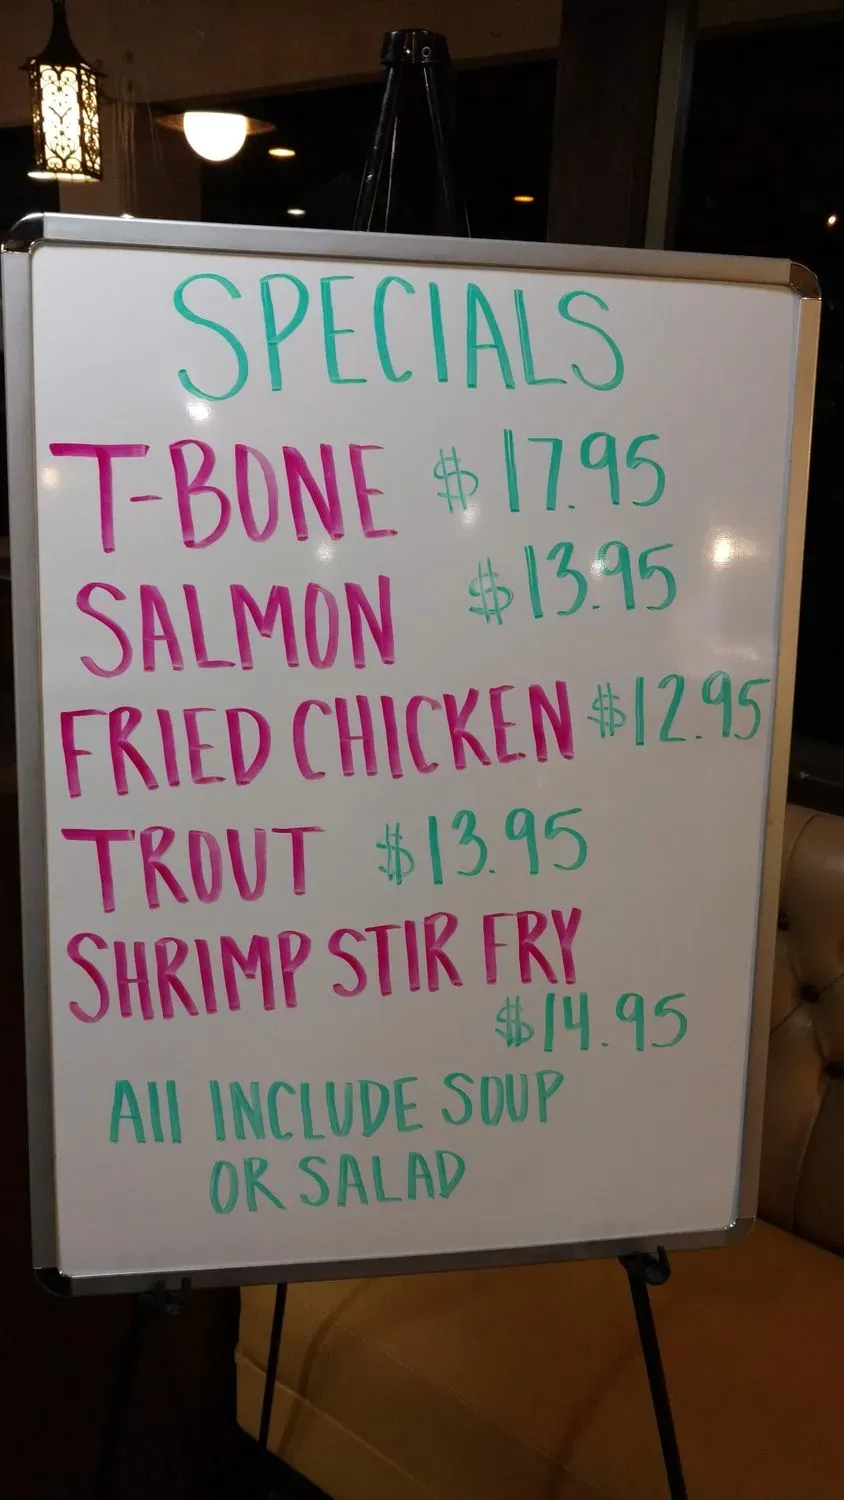 SPECIALS
T-BONE $17.95
SALMON $13.95
FRIED CHICKEN $12.95
TROUT $13.95
SHRIMP STIR FRY
$14.95
All INCLUDE SOUP
OR SALAD